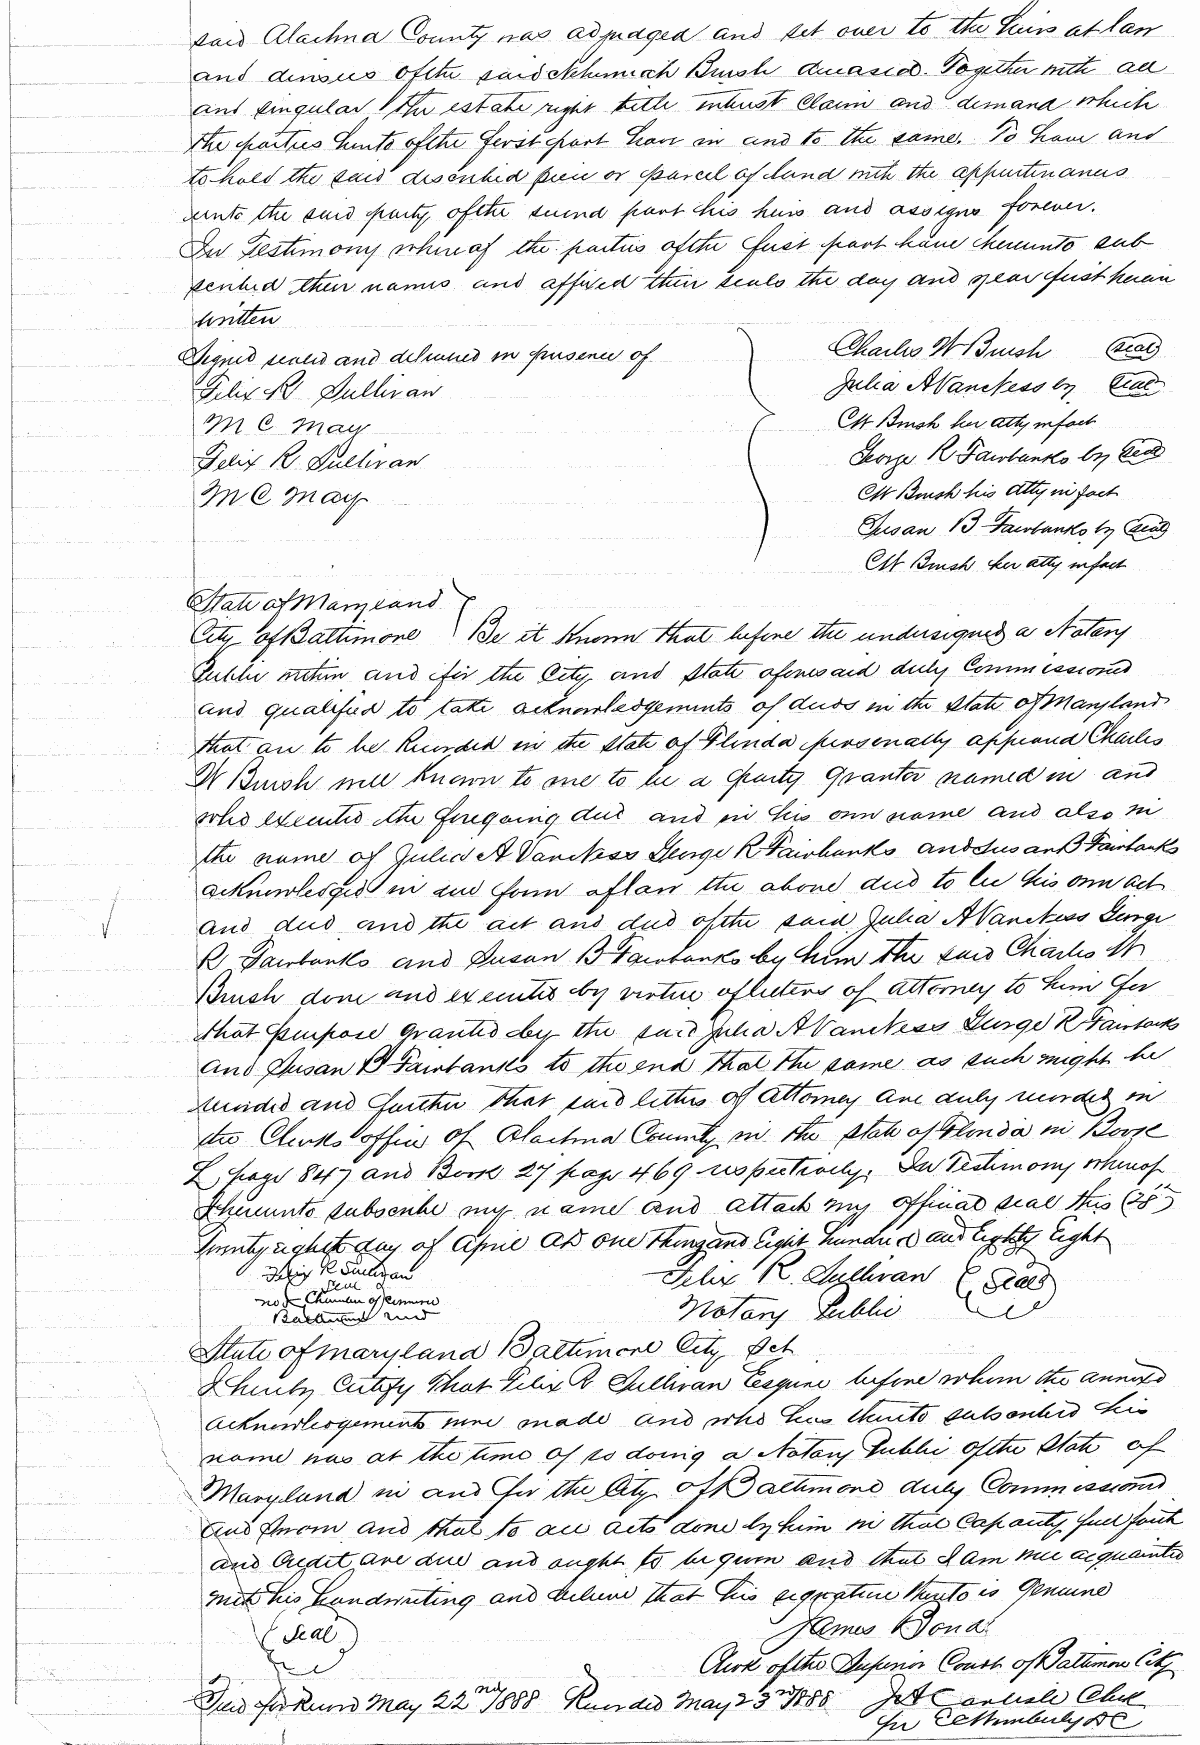 said Alachua County was adjudged and set over to the heirs at law
and devisees of the said Nehemiah Brush deceased. Together with all
and singular the estate right title interest claim and demand which
the parties hereto of the first part have in and to the same. To have and
to hold the said described piece or parcel of land with the appurtenances
unto the said party of the second part his heirs and assigns forever.
In Testimony whereof the parties of the first part have hereunto sub
scribed their names and affixed their seals the day and year first herein
written
Signed sealed and delivered in presence of
Felix R Sullivan
M C May
Felix R. Sullivan
M C May
Charles W Brush (seal)
Julia A Van Ness by (seal)
CW Brush her atty in fact
George R Fairbanks by (seal)
CW Brush his atty in fact
Susan B Fairbanks by (seal)
CW Brush her atty in fact
State of Maryland
City of Baltimore } Be it known that before the undersigned a Notary
Public within and for the City and State aforesaid duly Commissioned
and qualified to take acknowledgements of deeds in the State of Maryland
that are to be Recorded in the State of Florida personally appeared Charles
W Brush well known to me to be a party Grantor named in and
who executed the foregoing deed and in his own name and also in
the name of Julia A Van Ness George R Fairbanks and Susan B Fairbanks
acknowledged in due form of law the above deed to be his own act
and deed and the act and deed of the said Julia A Van Ness George
R Fairbanks and Susan B Fairbanks by him the said Charles W
Brush done and executed by virtue of letters of attorney to him for
that purpose granted by the said Julia A Van Ness George R Fairbanks
and Susan B Fairbanks to the end that the same as such might be
recorded and further that said letters of attorney are duly recorded in
the Clerks office of Alachua County in the State of Florida in Book
L page 847 and Book 27 page 469 respectively. In Testimony whereof
I hereunto subscribe my name and attach my official seal this (28th)
Twenty eighth day of April AD one thousand Eight hundred and Eighty Eight
Felix R Sullivan
Seal
Baltimore Md
Felix R. Sullivan (Seal)
Notary Public
State of Maryland Baltimore City Sct
I hereby Certify that Felix R Sullivan Esquire before whom the annexed
acknowledgements were made and who has thereto subscribed his
name was at the time of so doing a Notary Public of the State of
Maryland in and for the City of Baltimore duly Commissioned
and sworn and that to all acts done by him in that capacity full faith
and Credit are due and ought to be given and that I am well acquainted
with his handwriting and believe that his signature thereto is genuine
(Seal)
James Bond
Clerk of the Superior Court of Baltimore City
Filed for Record May 22nd 1888 Recorded May 23rd 1888 Carlisle Clerk
DC